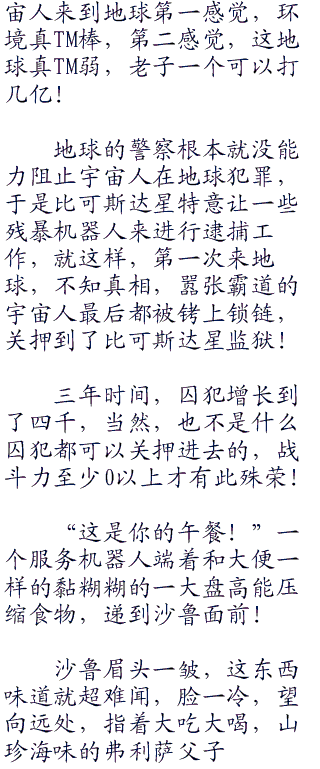 宙人来到地球第一感觉，环
境真TM棒，第二感觉，这地
球真TM弱，老子一个可以打
几亿！
地球的警察根本就没能
力阻止宇宙人在地球犯罪，
于是比可斯达星特意让一些
残暴机器人来进行逮捕工
作，就这样，第一次来地
球，不知真相，嚣张霸道的
宇宙人最后都被铐上锁链，
关押到了比可斯达星监狱！
三年时间，囚犯增长到
了四千，当然，也不是什么
囚犯都可以关押进去的，战
斗力至少0以上才有此殊荣！
“这是你的午餐！”一
个服务机器人端着和大便一
样的黏糊糊的一大盘高能压
缩食物，递到沙鲁面前！
沙鲁眉头一皱，这东西
味道就超难闻，脸一冷，望
向远处，指着大吃大喝，山
珍海味的弗利萨父子